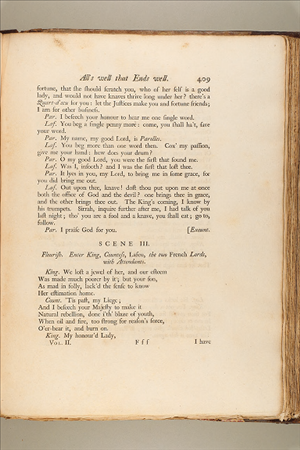 All's well that Ends well. 409
fortune, that she should scratch you, who of her self is a good
lady, and would not have knaves thrive long under her? there's a
Quart-d'ecu for you: let the Justices make you and fortune friends;
I am for other business.
Par. I beseech your honour to hear me one single word.
Laf. You beg a single penny more: come, you shall ha't, save
your word.
Par. My name, my good Lord, is Parolles.
Laf. You beg more than one word then. Cox' my passion,
give me your hand: how does your drum?
Par. O my good Lord, you were the first that found me.
Laf. Was I, insooth? and I was the first that lost thee.
Par. It lyes in you, my Lord, to bring me in some grace, for
you did bring me out.
Laf. Out upon thee, knave! dost thou put upon me at once
both the office of God and the devil? one brings thee in grace,
and the other brings thee out. The King's coming, I know by
his trumpets. Sirrah, inquire further after me, I had talk of you
last night; tho' you are a fool and a knave, you shall eat; go to,
follow.
Par. I praise God for you. [Exeunt.
SCENE III.
Flourish. Enter King, Countess, Lafeu, the two French Lords,
with Attendants.
King. We lost a jewel of her, and our esteem
Was made much poorer by it; but your son,
As mad in folly, lack'd the sense to know
Her estimation home.
Count. 'Tis past, my Liege;
And I beseech your Majesty to make it
Natural rebellion, done i'th' blaze of youth,
When oil and fire, too strong for reason's force,
O'er-bear it, and burn on.
King. My honour'd Lady,
VOL. II. F f f I have